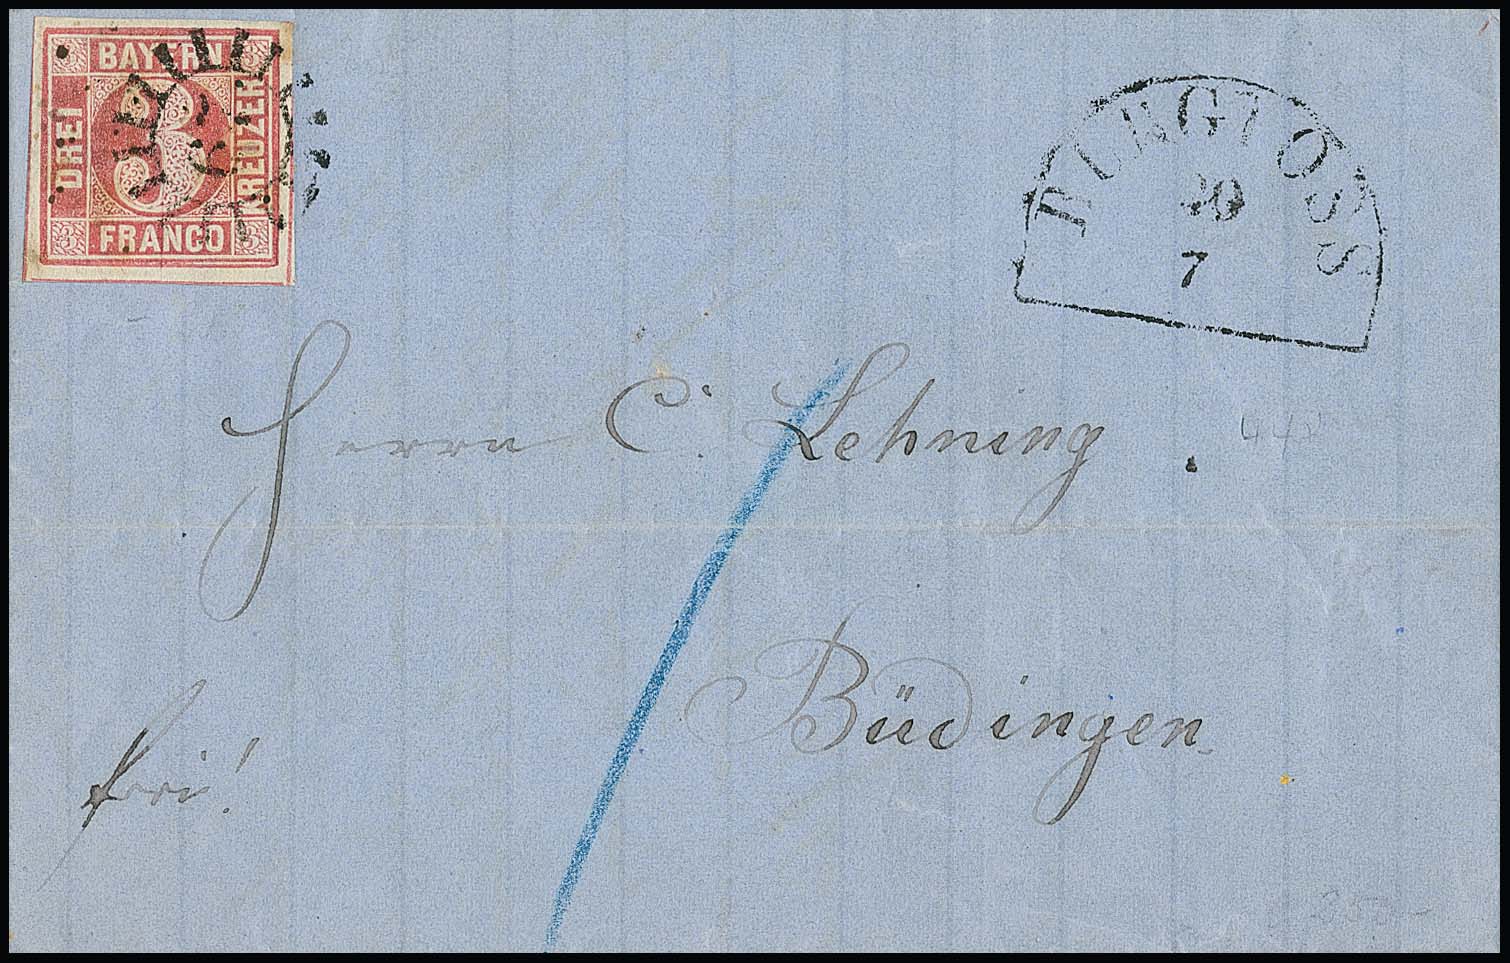 BAYERN
DREI
3
KREUZER
FRANCO
BURGJOSS
20
7
Herrn C. Lehning
Büdingen
frei!